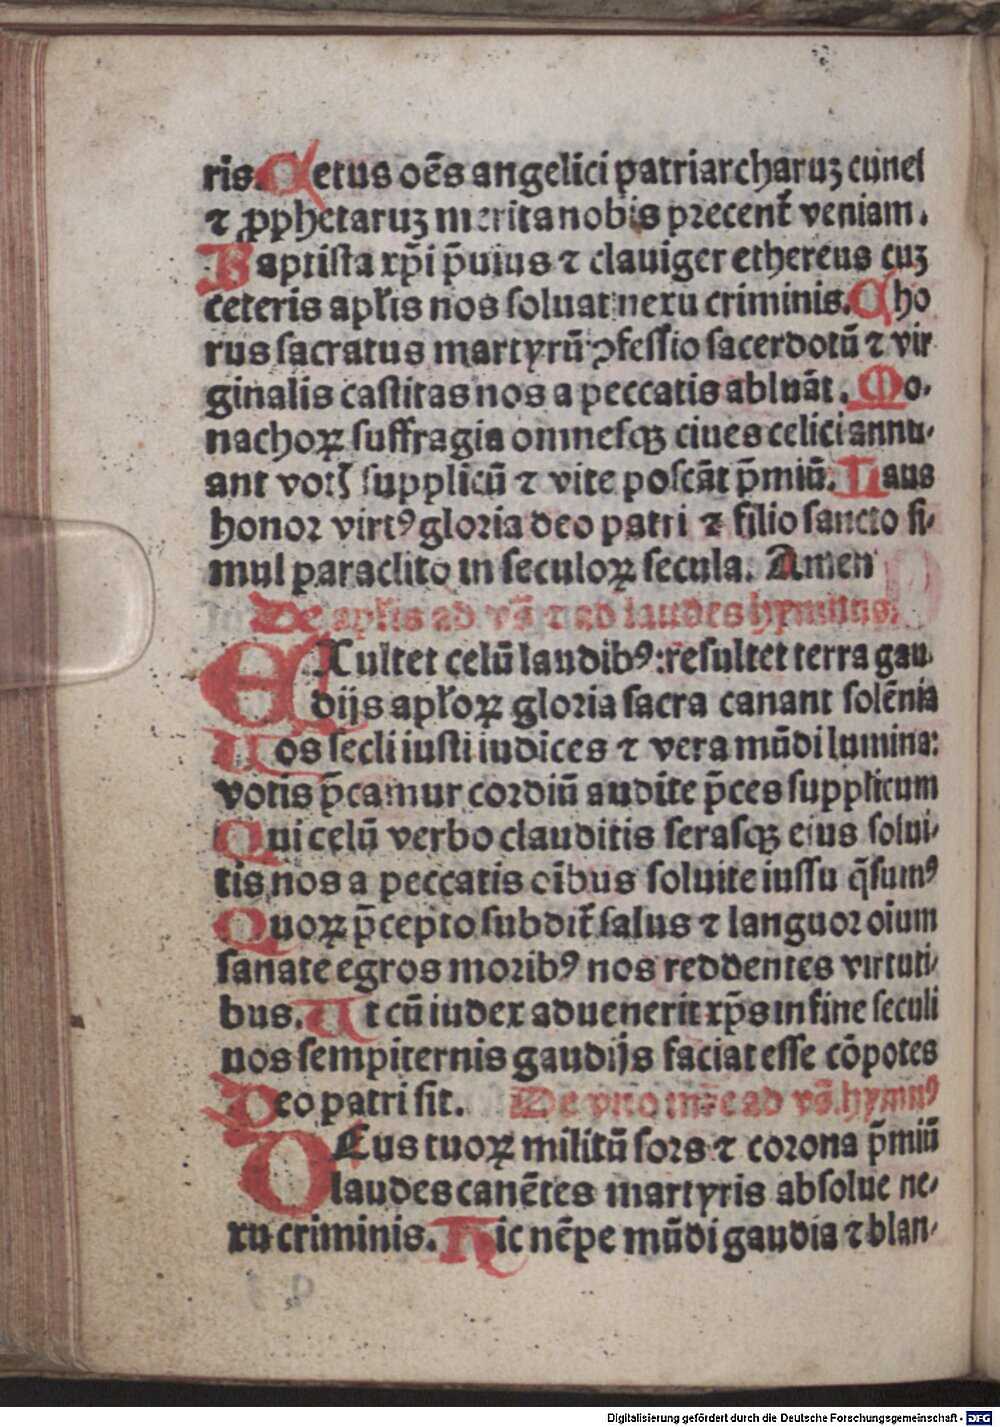 ris. Cetus oẽs angelici patriarcharuꝫ cunei
⁊ ꝓphetaruꝫ merita nobis precent̃ veniam.
Baptista xp̃i p̃uius ⁊ clauiger ethereus cuꝫ
ceteris apl̃is nos soluat nexu criminis. Cho
rus sacratus martyrũ ꝯfessio sacerdotũ ⁊ vir
ginalis castitas nos a peccatis abluãt. Mo-
nachoꝝ suffragia omnesqꝫ ciues celici annu-
ant votꝭ supplicũ ⁊ vite poscãt p̃miũ. Laus
honor virtꝰ gloria deo patri ⁊ filio sancto si-
mul paraclito in seculoꝝ secula. Amen
De apl̃is ad vs̃ ⁊ ad laudes hymnus.
EXultet celũ laudibꝰ: resultet terra gau
dijs apl̃oꝝ gloria sacra canant solẽnia
Uos secli iusti iudices ⁊ vera mũdi lumina:
votis p̃camur cordiũ audite p̃ces supplicum
Qui celũ verbo clauditis serasqꝫ eius solui-
tis nos a peccatis oĩbus soluite iussu q̃sumꝰ
Quoꝝ p̃cepto subdit̃ salus ⁊ languor oium
sanate egros moribꝰ nos reddentes virtuti-
bus. Ut cũ iudex aduenerit xp̃s in fine seculi
nos sempiternis gaudijs faciat esse cõpotes
Deo patri sit. De vno mr̃e ad vs̃. hymnꝰ
DEus tuoꝝ militũ sors ⁊ corona p̃miũ
laudes canẽtes martyris absolue ne-
xu criminis. Hic nẽpe mũdi gaudia ⁊ blan-
Digitalisierung gefördert durch die Deutsche Forschungsgemeinschaft - DFG